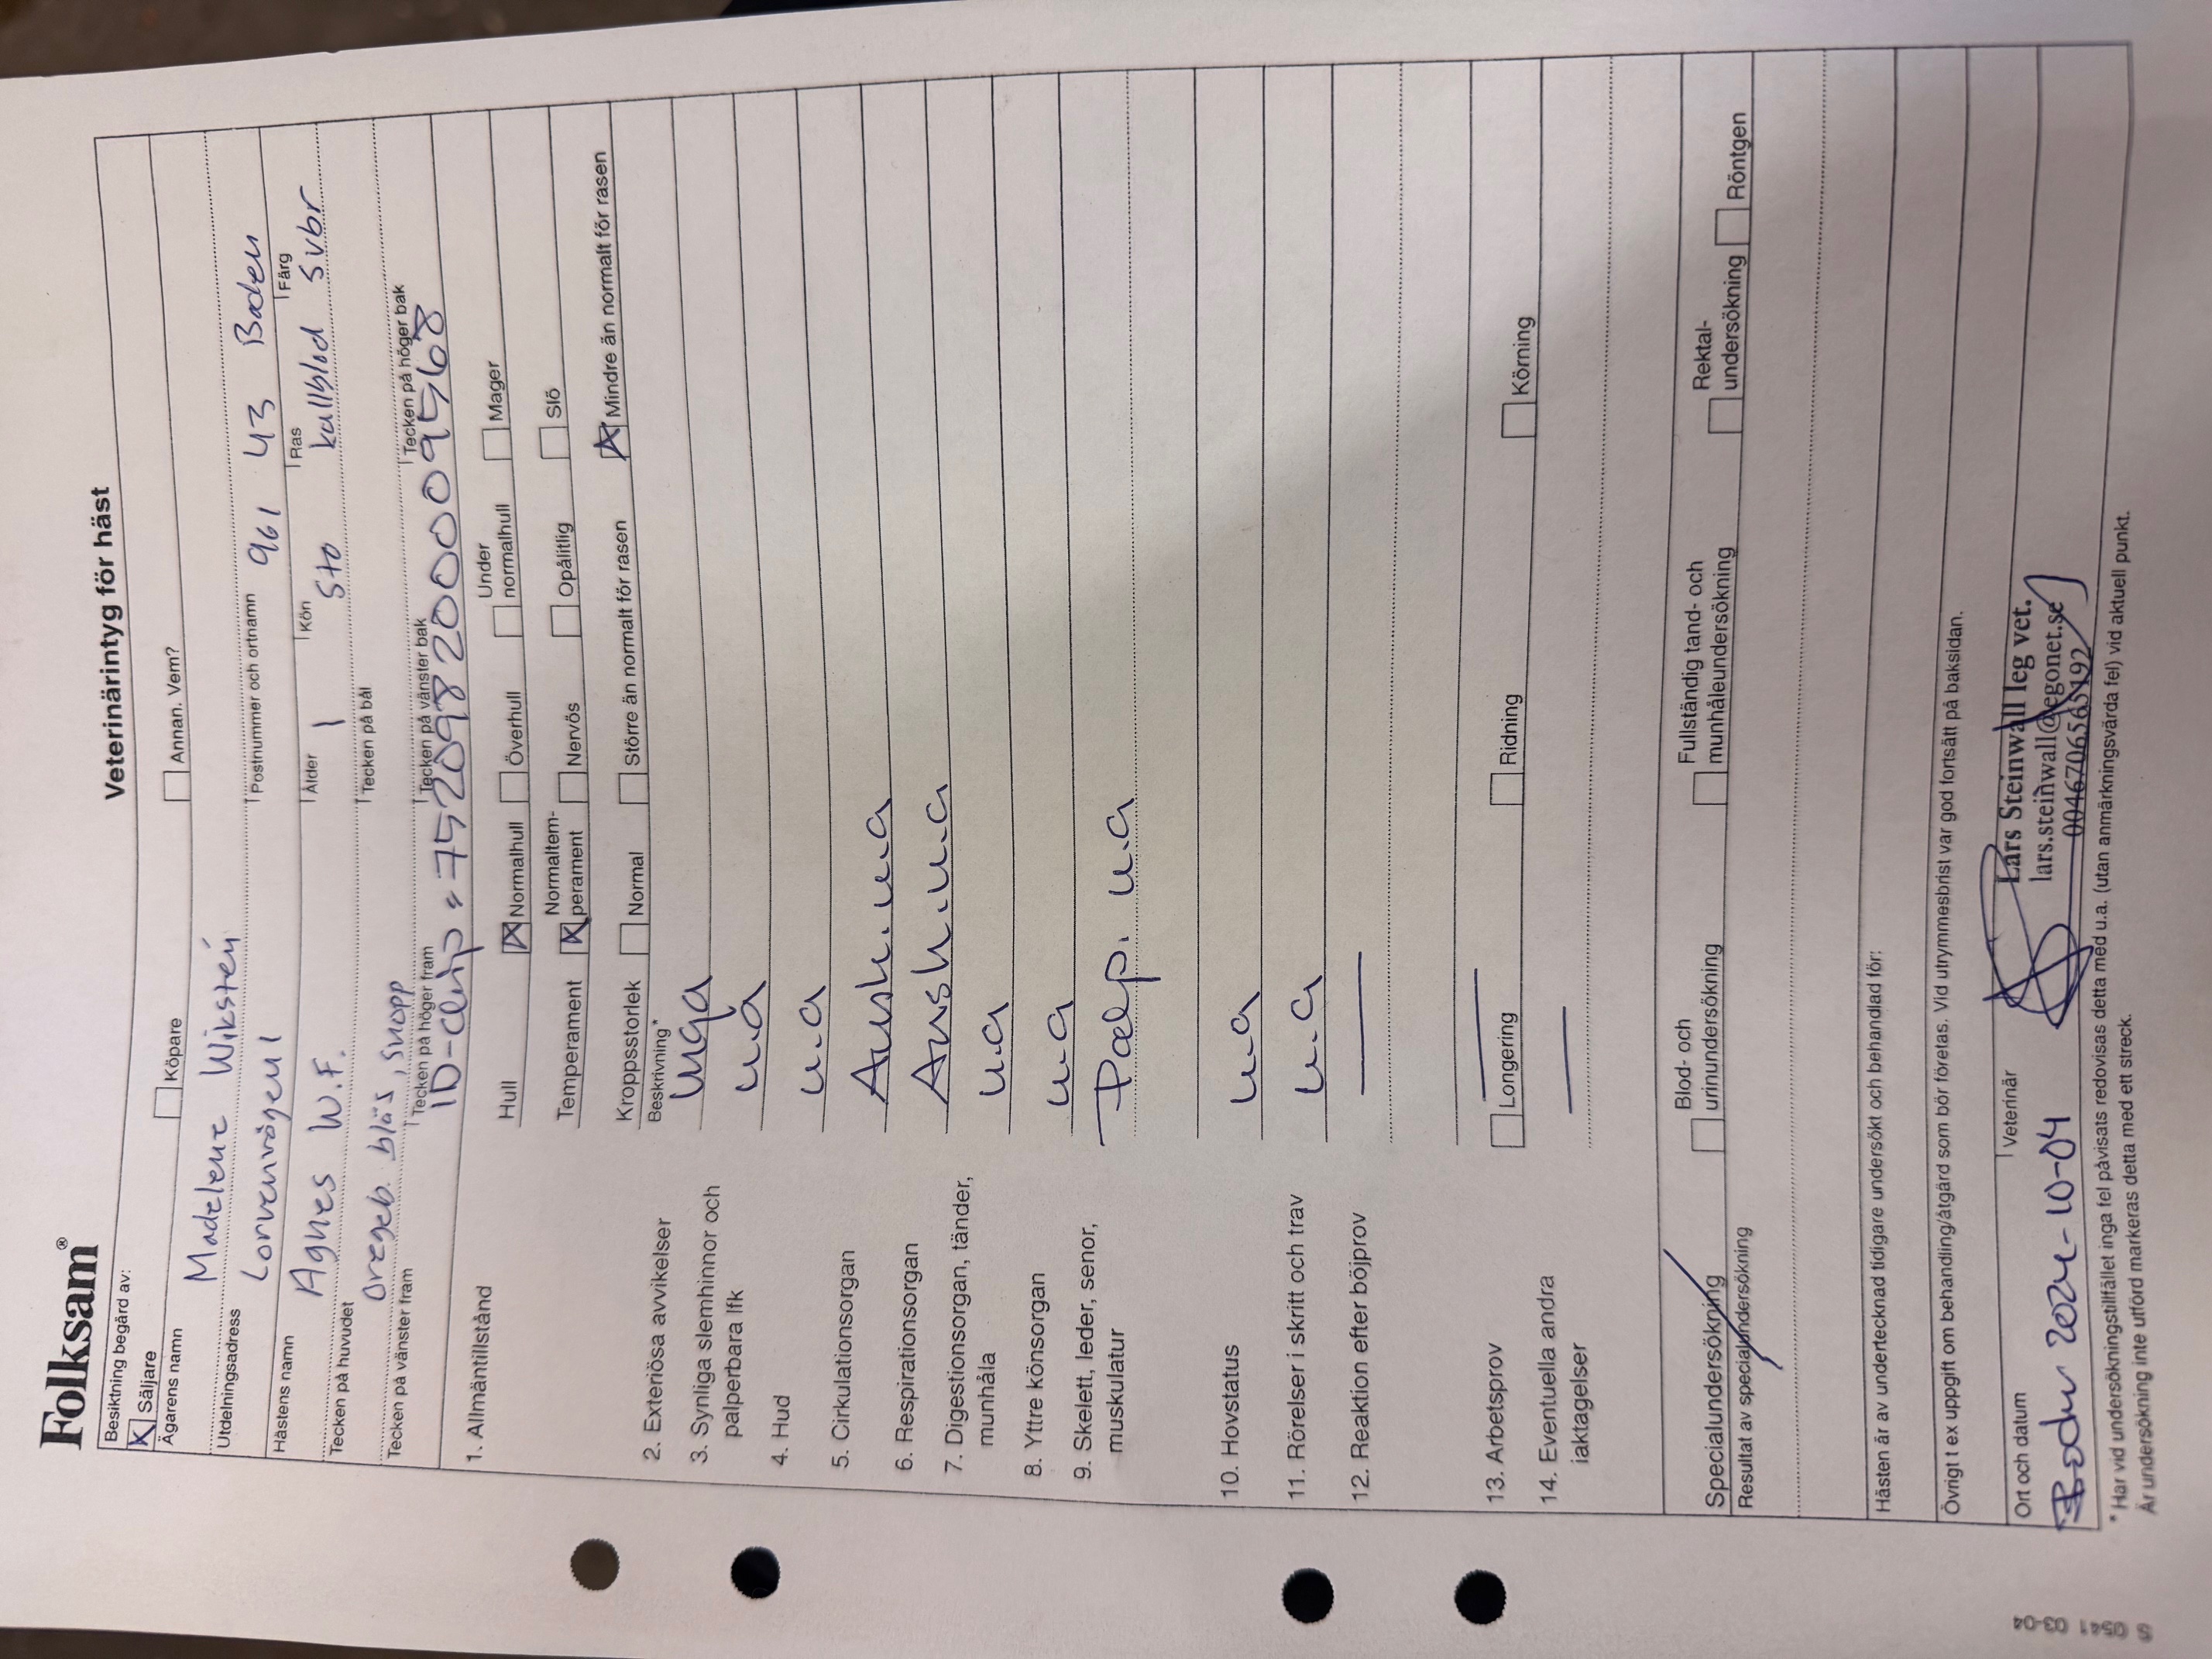 Folksam®
Veterinärintyg för häst
Besiktning begärd av:
X Säljare Köpare Annan. Vem?
Ägarens namn
Madelene Wikstén
Utdelningsadress Postnummer och ortnamn
961 43 Boden
Hästens namn Ålder Kön Ras Färg
Agnes W.F. 1 Sto kallblod svbr
Tecken på huvudet Tecken på bål
Oregeb. bläs, snopp
Tecken på vänster fram Tecken på höger fram Tecken på vänster bak Tecken på höger bak
ID-chip = 752098200009568
1. Allmäntillstånd Hull X Normalhull Överhull Under normalhull Mager
Temperament X Normaltemperament Nervös Opålitlig Slö
Kroppsstorlek Normal Större än normalt för rasen X Mindre än normalt för rasen
Beskrivning*
2. Exteriösa avvikelser uga
3. Synliga slemhinnor och palperbara lfk ua
4. Hud u.a
5. Cirkulationsorgan Ausk. ua
6. Respirationsorgan Ausk. u.a
7. Digestionsorgan, tänder, munhåla ua
8. Yttre könsorgan ua
9. Skelett, leder, senor, muskulatur Palp. ua
10. Hovstatus ua
11. Rörelser i skritt och trav u.a
12. Reaktion efter böjprov —
13. Arbetsprov — Longering Ridning Körning
14. Eventuella andra iaktagelser —
Specialundersökning Blod- och urinundersökning Fullständig tand- och munhåleundersökning Rektalundersökning Röntgen
Resultat av specialundersökning
Hästen är av undertecknad tidigare undersökt och behandlad för:
Övrigt t ex uppgift om behandling/åtgärd som bör företas. Vid utrymmesbrist var god fortsätt på baksidan.
Ort och datum Veterinär
Boden 2024-10-04
Lars Steinwall leg vet.
lars.steinwall@egonet.se
0046706565192
* Har vid undersökningstillfället inga fel påvisats redovisas detta med u.a. (utan anmärkningsvärda fel) vid aktuell punkt.
Är undersökning inte utförd markeras detta med ett streck.
S 0541 03-04